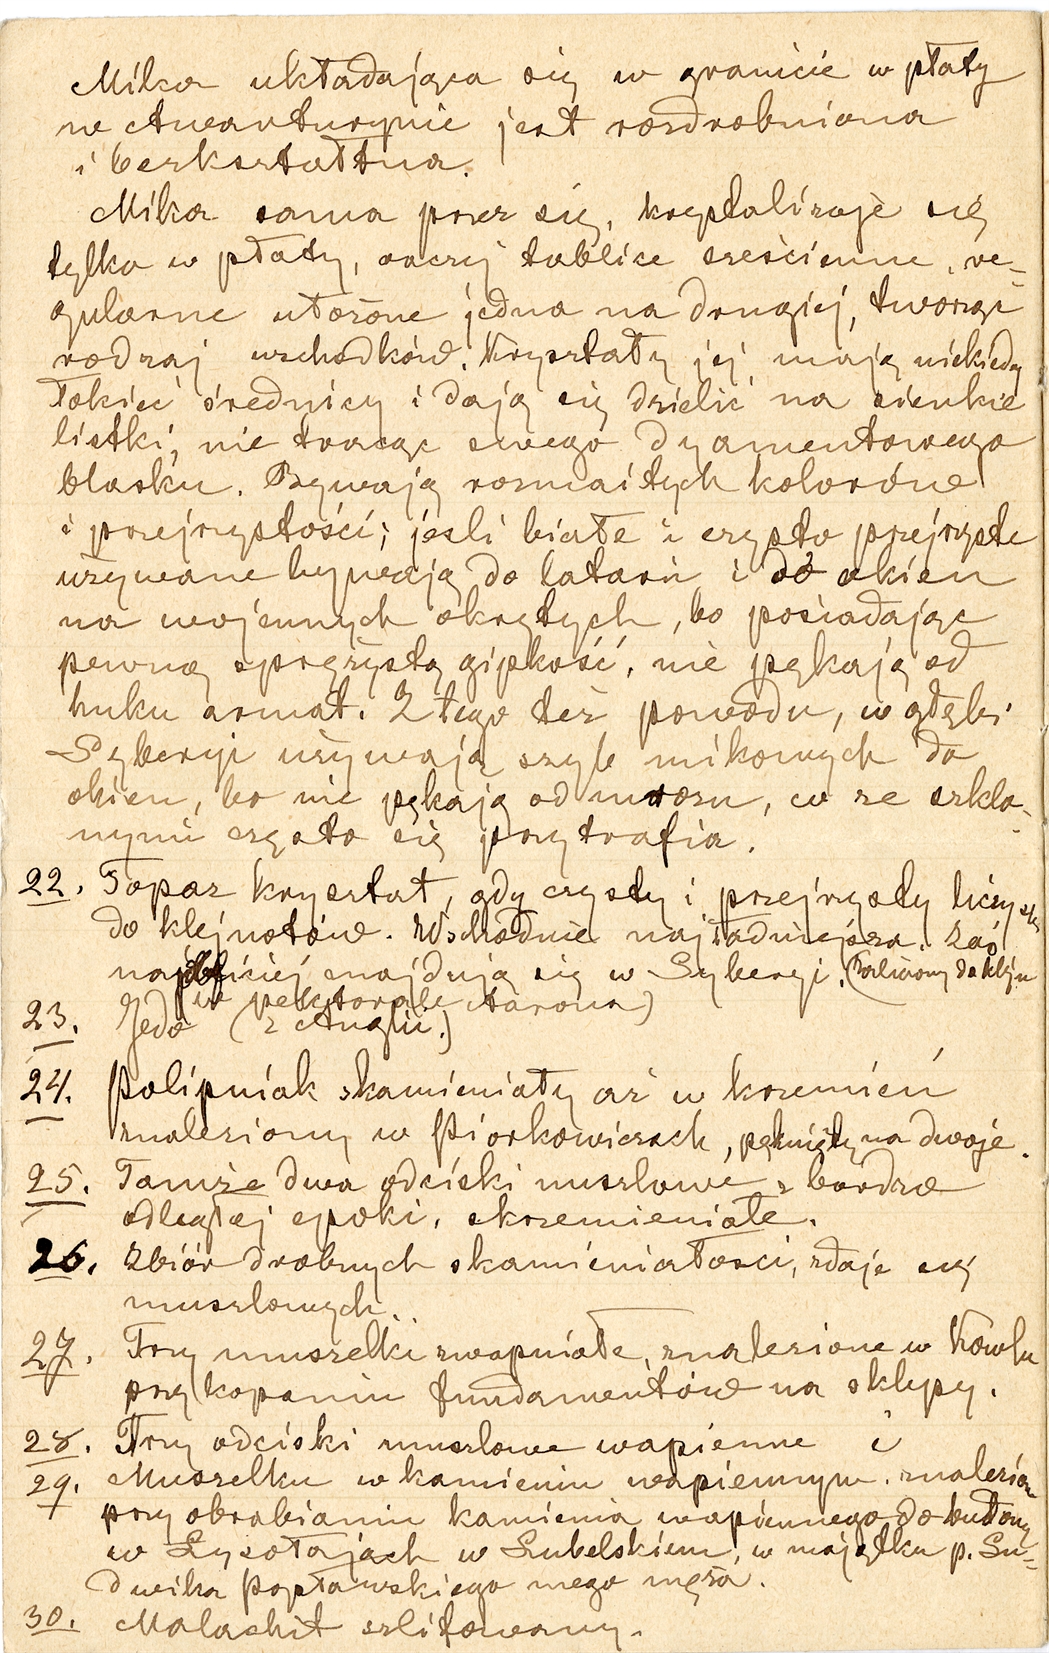 Mika układająca się w granicie w płaty
w Awanturynie jest rozdrobniona
i bezkształtna.
Mika sama przez się, krystalizuje się
tylko w płaty, raczej tablice sześcienne, re-
gularne ułożone jedna na drugiej, tworząc
rodzaj wschodków. Kryształy jej mają niekiedy
łokieć średnicy i dają się dzielić na cienkie
listki, nie tracąc swego dyamentowego
blasku. Bywają rozmaitych kolorów
i przejrzystości; jeśli białe i czysto przejrzyste
używane bywają do latarń i do okien
na wojennych okrętych, bo posiadając
pewną sprężystą gipkość, nie pękają od
huku armat. Z tego też powodu, w głębi
Syberyi używają szyb mikowych do
okien, bo nie pękają od mrozu, co ze szkla-
nymi często się przytrafia.
22. Topaz kryształ, gdy czysty i przejrzysty liczy się
do klejnotów. Wschodnie najładniejsze. Zaś
najobficiej znajdują się w Syberyi. (Zaliczony do klejn
w pektorale Aarona)
23. Jedo (z Anglii.)
24. Polipniak skamieniały aż w krzemień
znaleziony w Piorkowicach, pęknięty na dwoje.
25. Tamże dwa odciski muszlowe z bardzo
odległej epoki, skrzemieniałe.
26. Zbiór drobnych skamieniałości, zdaje się
muszlowych.
27. Trzy muszelki zwapniałe, znalezione w Kowlu
przy kopaniu fundamentów na sklepy.
28. Trzy odciski muszlowe wapienne i
29. Muszelka w kamieniu wapiennym, znalezion
przy obrabianiu kamienia wapiennego do budowy
w Łysołajach w Lubelskiem, w majątku p. Lu-
dwika Popławskiego mego męża.
30. Malachit szlifowany.